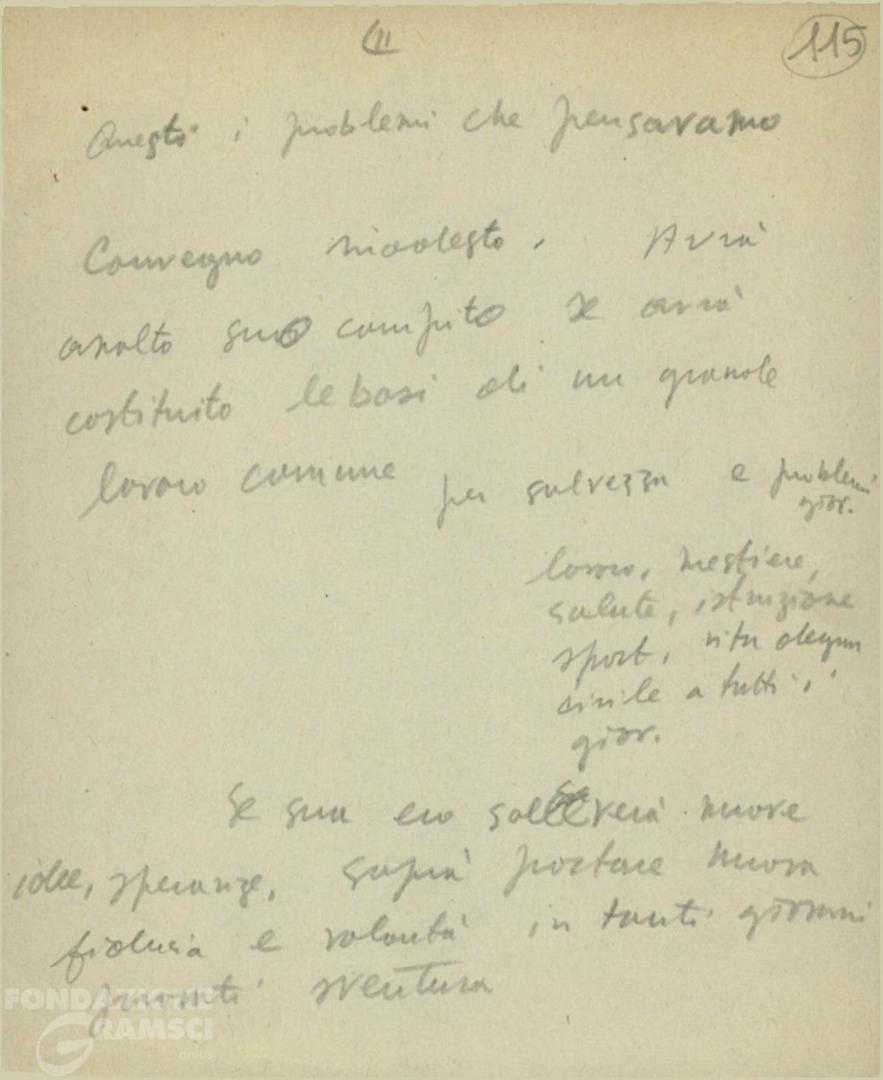 II
115
Questi i problemi che pensavamo
Convegno modesto. Avrà
assolto suo compito se avrà
costituito le basi di un grande
lavoro comune per salvezza e problemi
giov.
lavoro, mestiere,
salute, istruzione
sport, vita degna
civile a tutti i
giov.
Se sua eco solleverà nuove
idee, speranze, saprà portare nuova
fiducia e volontà in tanti giovani
provati sventura
FONDAZIONE
GRAMSCI
onlus